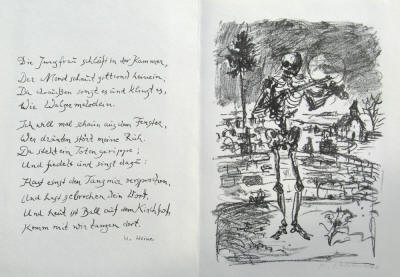 Die Jungfrau schläft in der Kammer,
Der Mond schaut zitternd hinein;
Da draußen singt es und klingt es,
Wie Walzermelodein.
Ich will mal schaun aus dem Fenster,
Wer drunten stört meine Ruh.
Da steht ein Totengerippe,
Und fiedelt und singt dazu:
Hast einst den Tanz mir versprochen,
Und hast gebrochen dein Wort,
Und heut ist Ball auf dem Kirchhof,
Komm mit wir tanzen dort.
H. Heine